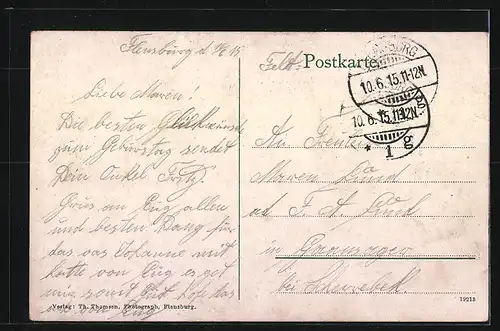 Flensburg d. 10/6 15
Feld- Postkarte
10.6.15.11-12N.
10.6.15.11-12N.
* 1 g
Liebe Maren!
Die besten Glückwünsche
zum Geburtstag sendet
Dein Onkel Fritz.
Grus an Eug allen
und besten Dang für
das was Johanne mit
hatte von Eug es get
mir sonst Gut hofe das
von Eug
An
Maren Lund
ad
in
bei Scherrebek
Verlag: Th. Thomsen, Photograph, Flensburg.
19215